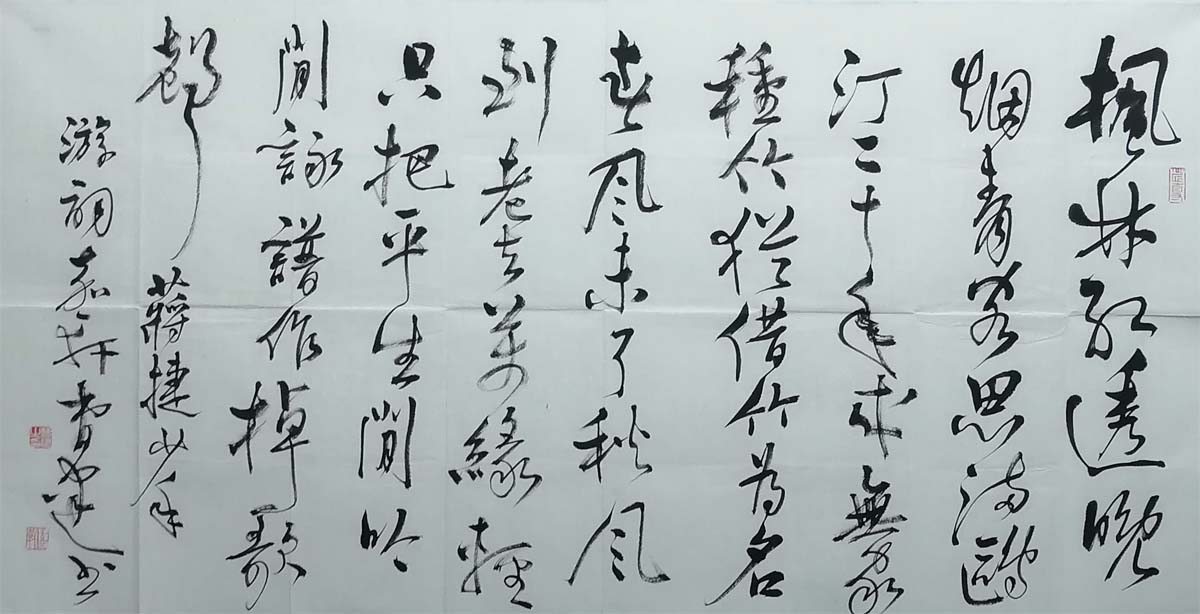 楓林紅透晚
烟青客思满鷗
汀二十年来無家
種竹猶借竹為名
春风未了秋风
到老去萬緣輕
只把平生閒吟
閒詠譜作棹歌
聲 蔣捷少年
游詞 軒 书